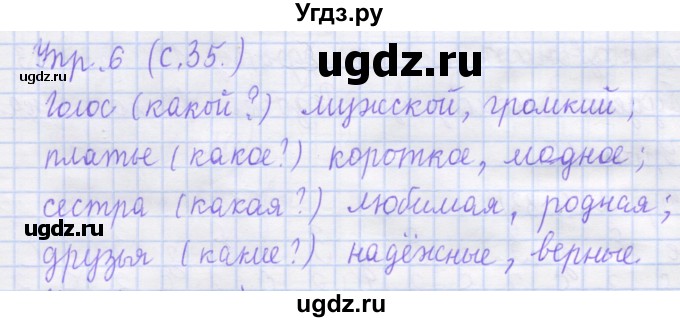 Угдз.ру
Упр. 6 (с. 35.)
ugdz.ru
ugdz.ru
ugdz.ru
Голос (какой?) мужской, громкий;
платье (какое?) короткое, модное;
ugdz.ru
ugdz.ru
сестра (какая?) любимая, родная;
друзья (какие?) надёжные, верные.
ugdz.ru